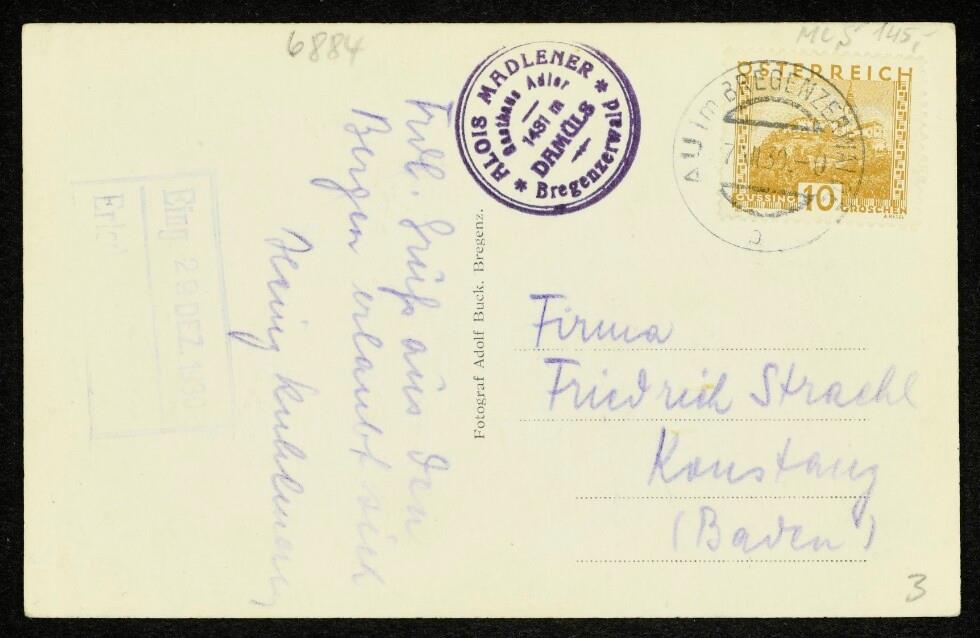 6884
ALOIS MADLENER
Gasthaus Adler
1431 m
DAMÜLS
* Bregenzerwald *
ÖSTERREICH
GÜSSING 10 GROSCHEN
AU im BREGENZERWALD
b
Frdl. Grüße aus den
Bergen erlaubt sich
Eing 29 DEZ. 193
Erl
Fotograf Adolf Buck, Bregenz.
Firma
Friedrich Strachl
Konstanz
(Baden)
3